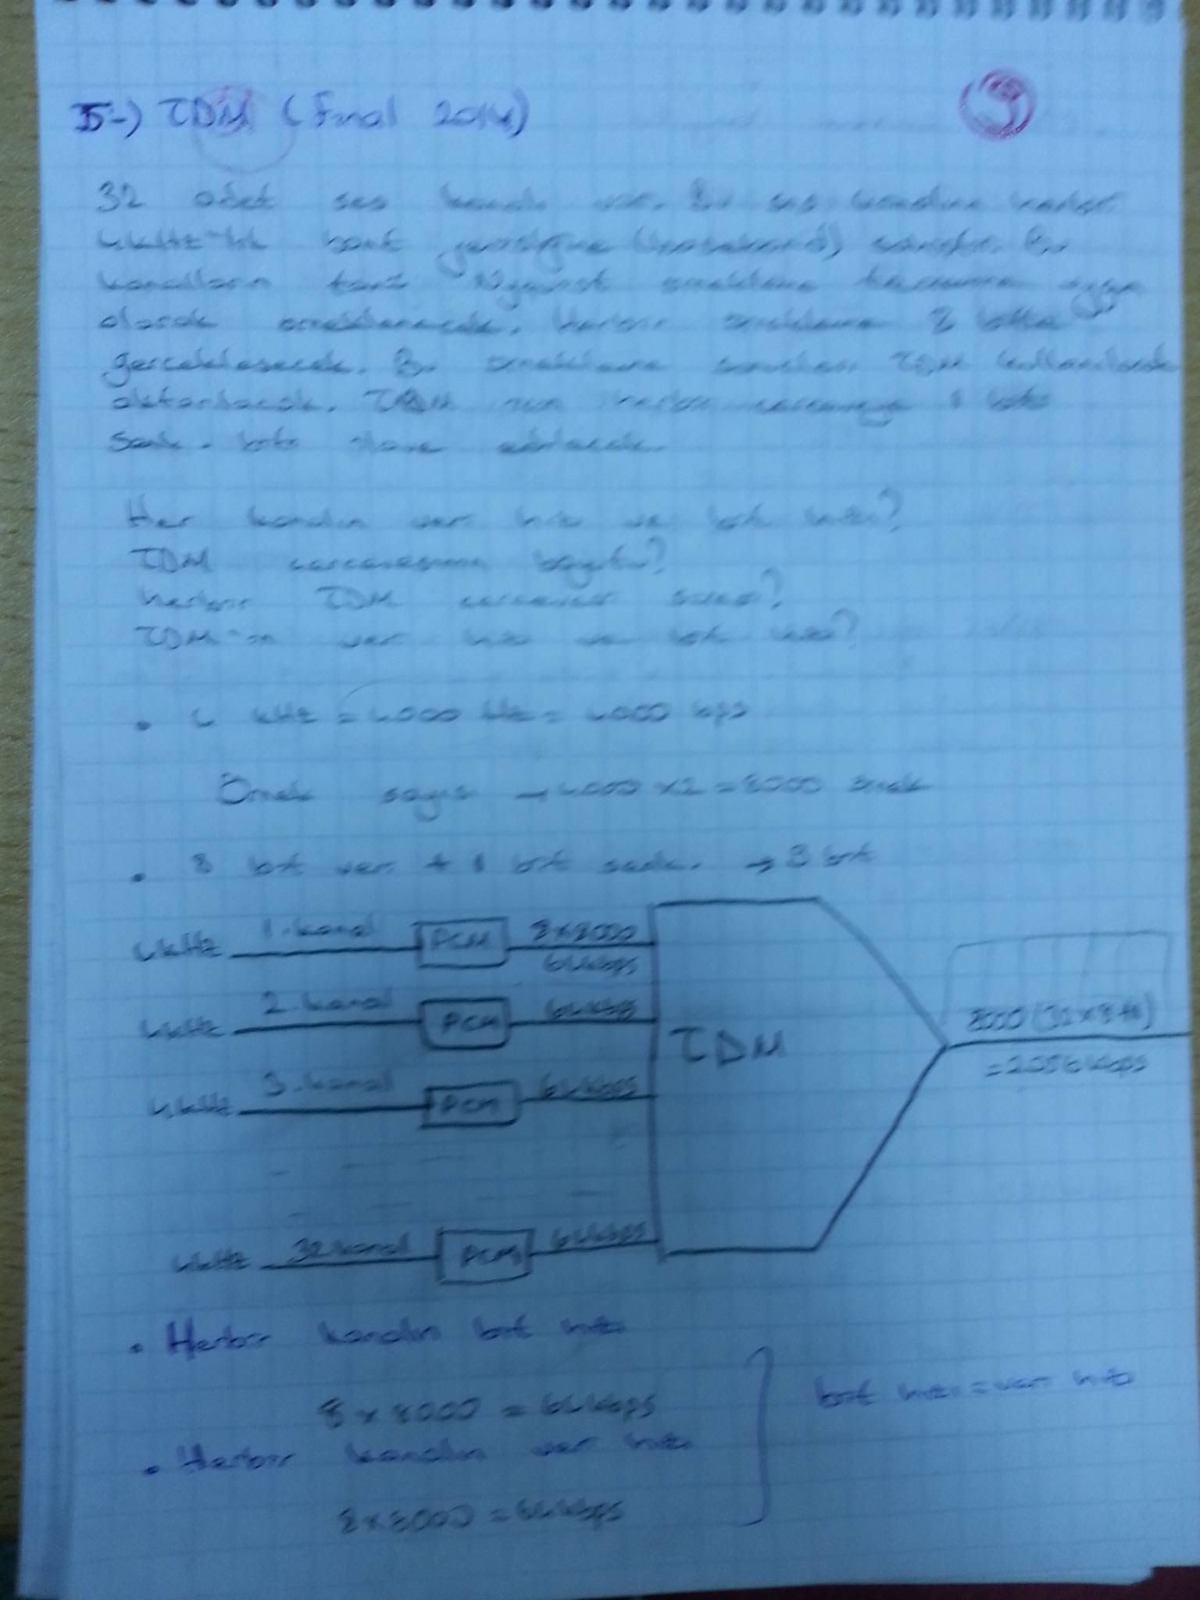 5-) TDM (Final 2014)
9
32 adet ses kanalı var. Bu ses kanalına kadar
4kHz'lik bant genişliğine (baseband) sahiptir. Bu
kanalların tamamı Nyquist örnekleme teoremine uygun
olarak örneklenecek. Herbir örnekleme 8 bitle
gerçekleşecek. Bu örnekleme sonuçları TDM kullanılarak
aktarılacak. TDM nın herbir çerçeveye 1 bit
senk. biti ilave edilecek.
Her kanalın veri hızı ve bit hızı?
TDM çerçevesinin boyutu?
herbir TDM çerçevesi süresi?
TDM'in veri hızı ve bit hızı?
• 4 kHz = 4000 Hz = 4000 bps
Örnek sayısı → 4000 x 2 = 8000 örnek
• 8 bit veri + 1 bit senk. → 9 bit
4kHz 1.kanal PCM 8x8000
64kbps
4kHz 2.kanal PCM 64kbps
TDM 8000(32x8+1)
= 2056kbps
4kHz 3.kanal PCM 64kbps
4kHz 32.kanal PCM 64kbps
• Herbir kanalın bit hızı
8 x 8000 = 64kbps
bit hızı = veri hızı
• Herbir kanalın veri hızı
8x8000 = 64kbps